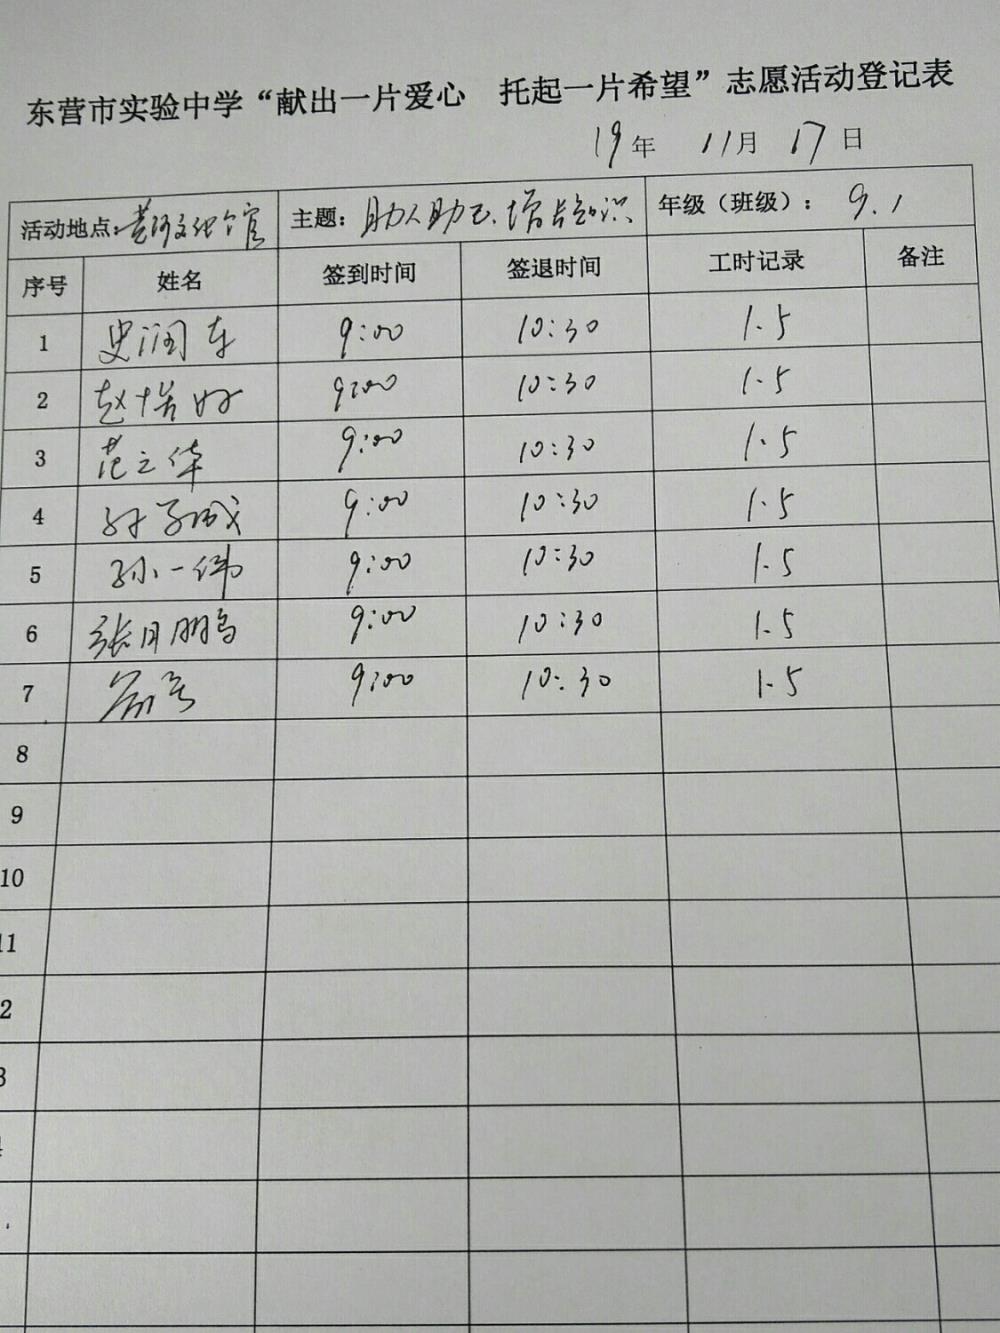 东营市实验中学“献出一片爱心 托起一片希望”志愿活动登记表
19年 11月 17日
活动地点:黄河文化馆 主题：助人助己.增长知识 年级（班级）：9.1
序号 姓名 签到时间 签退时间 工时记录 备注
1 史润东 9:00 10:30 1.5
2 赵 9:00 10:30 1.5
3 范之华 9:00 10:30 1.5
4 孙子成 9:00 10:30 1.5
5 孙一伟 9:00 10:30 1.5
6 张月鹏 9:00 10:30 1.5
7 9:00 10:30 1.5
8
9
10
11
2
3